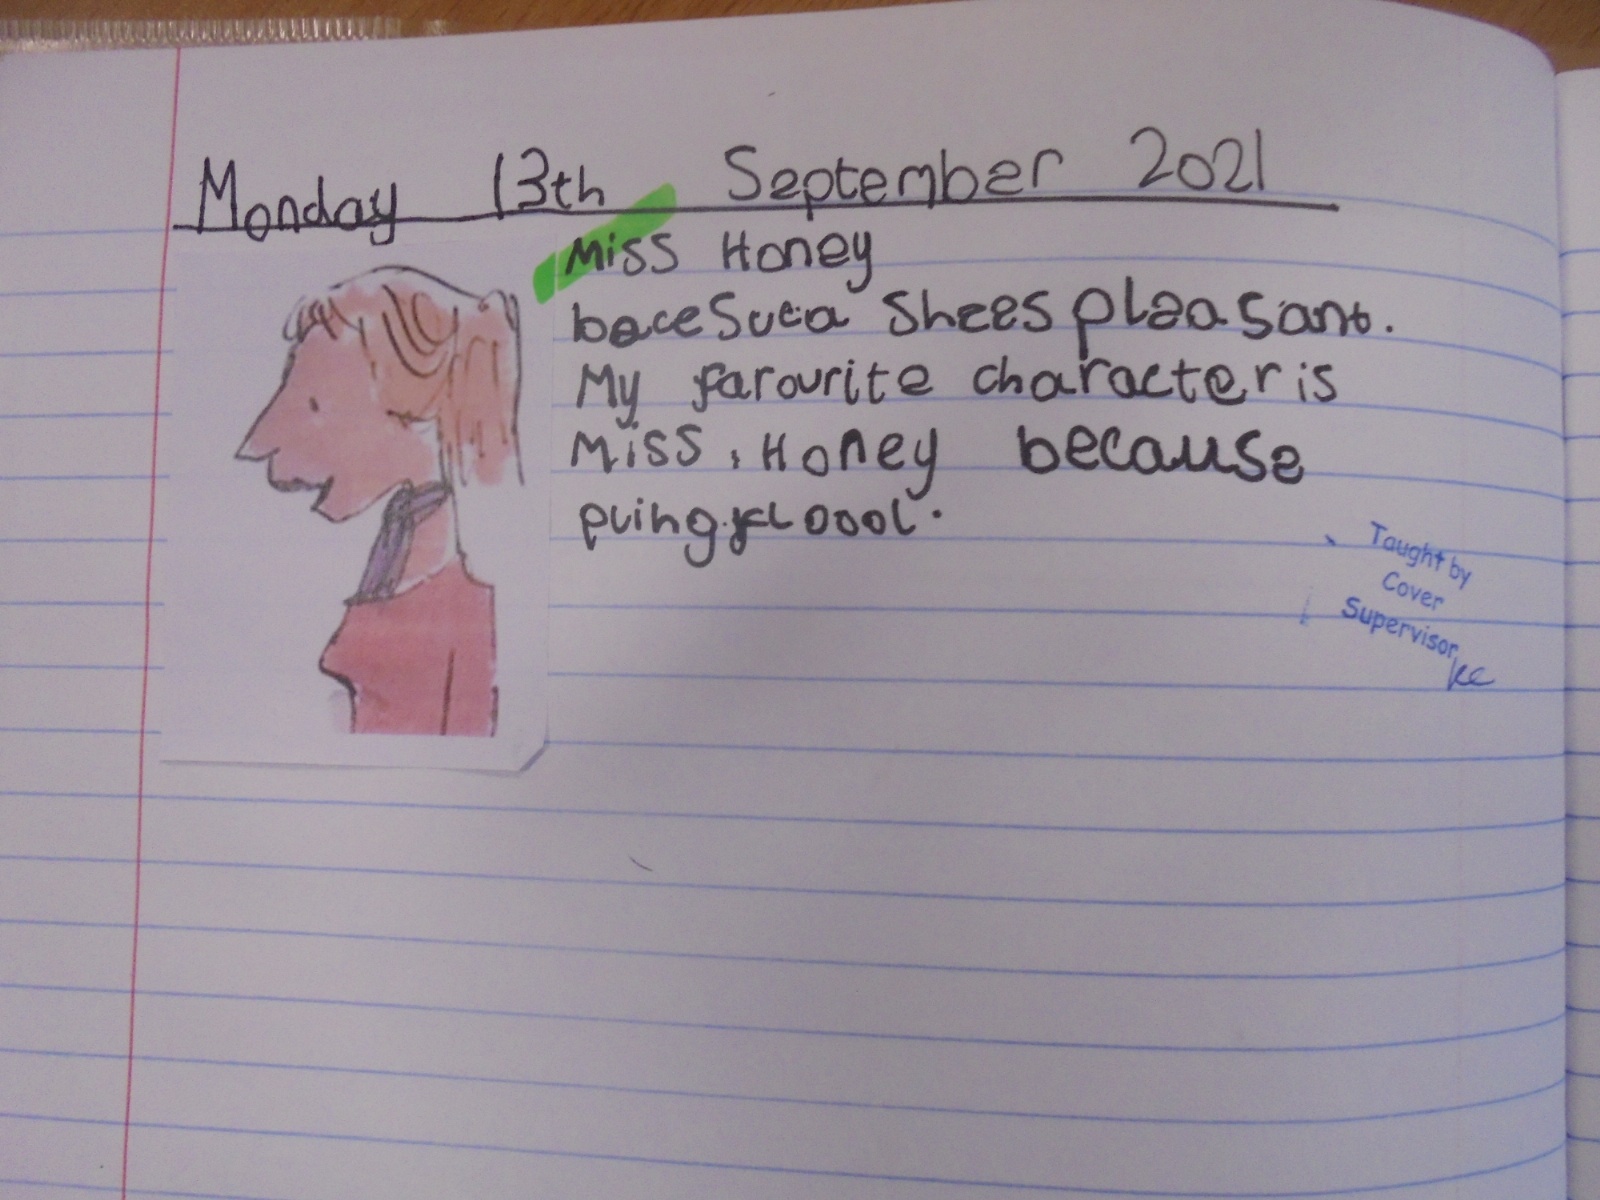 Monday 13th September 2021
Miss Honey
baceSuea Shees pleasant.
My favourite character is
Miss, Honey because
Taught by
Cover
Supervisor
KC